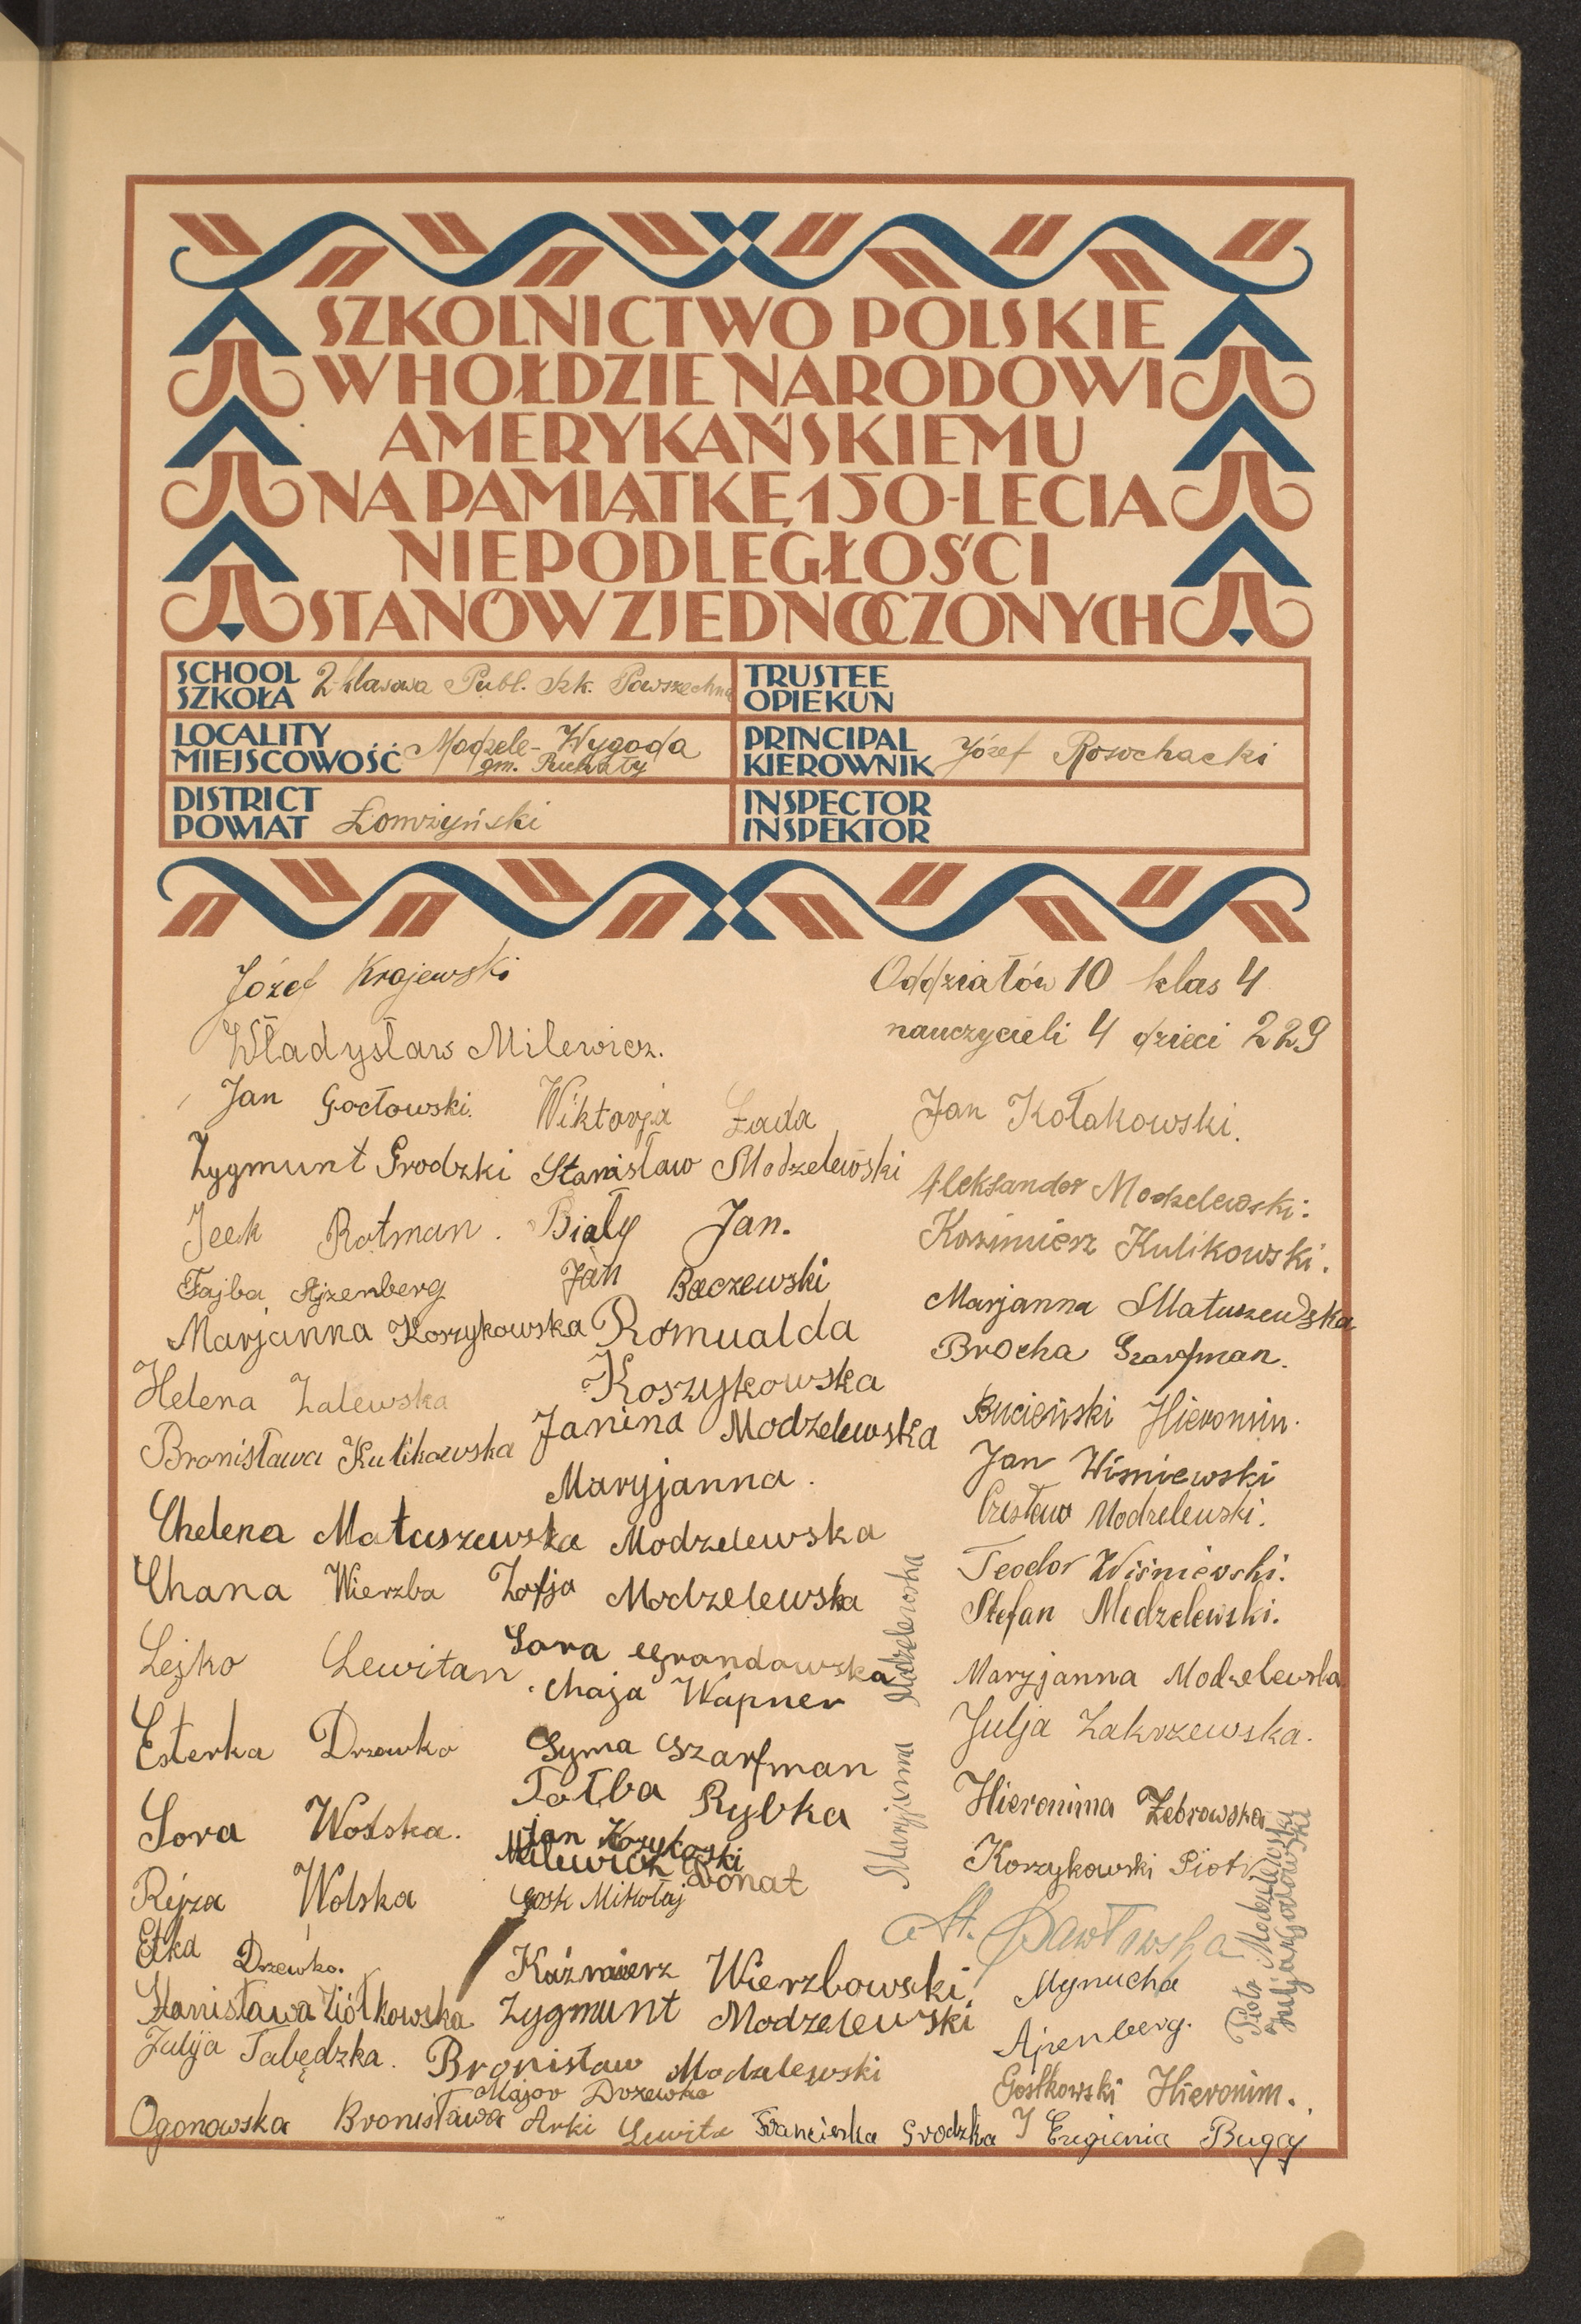 SZKOLNICTWO POLSKIE
W HOŁDZIE NARODOWI
AMERYKAŃSKIEMU
NA PAMIĄTKĘ 150-LECIA
NIEPODLEGŁOŚCI
STANÓW ZJEDNOCZONYCH
SCHOOL
SZKOŁA
2-klasowa Publ. Szk. Powszechna
TRUSTEE
OPIEKUN
LOCALITY
MIEJSCOWOŚĆ
Modzele-Wygoda
gm. Puchały
PRINCIPAL
KIEROWNIK
Józef Rosochacki
DISTRICT
POWIAT
Łomżyński
INSPECTOR
INSPEKTOR
Józef Krajewski
Władysław Milewicz.
Jan Gocłowski.
Zygmunt Grodzki
Icek Rotman.
Fajba Ajzenberg
Marjanna Koszykowska
Helena Zalewska
Bronisława Kulikowska
Chelena Matuszewska
Chana Wierzba
Lejko Lewitan
Esterka Drzewko
Sora Wolska.
Rejza Wolska
Etka Drzewko.
Stanisława Ziółkowska
Julja Łabędzka.
Ogonowska Bronisława
Wiktorja Łada
Stanisław Modzelewski
Biały Jan.
Jan Baczewski
Romualda
Koszykowska
Janina Modzelewska
Maryjanna.
Modzelewska
Zofja Modzelewska
Sora Grondowska
Chaja Wapner
Syma Szarfman
Tołba Rybka
Jan
Milewicz Donat
Gosk Mikołaj
Kaźmierz Wierzbowski
Zygmunt Modzelewski
Bronisław Modzelewski
Major Drzewko
Arki Lewita
Franciszka Grodzka
Marjanna Modzelewska
Oddziałów 10 klas 4
nauczycieli 4 dzieci 229
Jan Kołakowski.
Aleksander Modzelewski.
Kazimierz Kulikowski.
Marjanna Matuszewska
Brocha Szarfman.
Buciński Hieronim.
Jan Wiśniewski
Czesław Modzelewski.
Teodor Wiśniewski.
Stefan Modzelewski.
Maryjanna Modzelewska
Julja Zakrzewska.
Hieronima Żebrowska
Korzykowski Piotr
St. Pawłowska
Mynucha
Ajzenberg.
Gostkowski Hieronim.
Eugienia Bugaj
Piotr Modzelewski